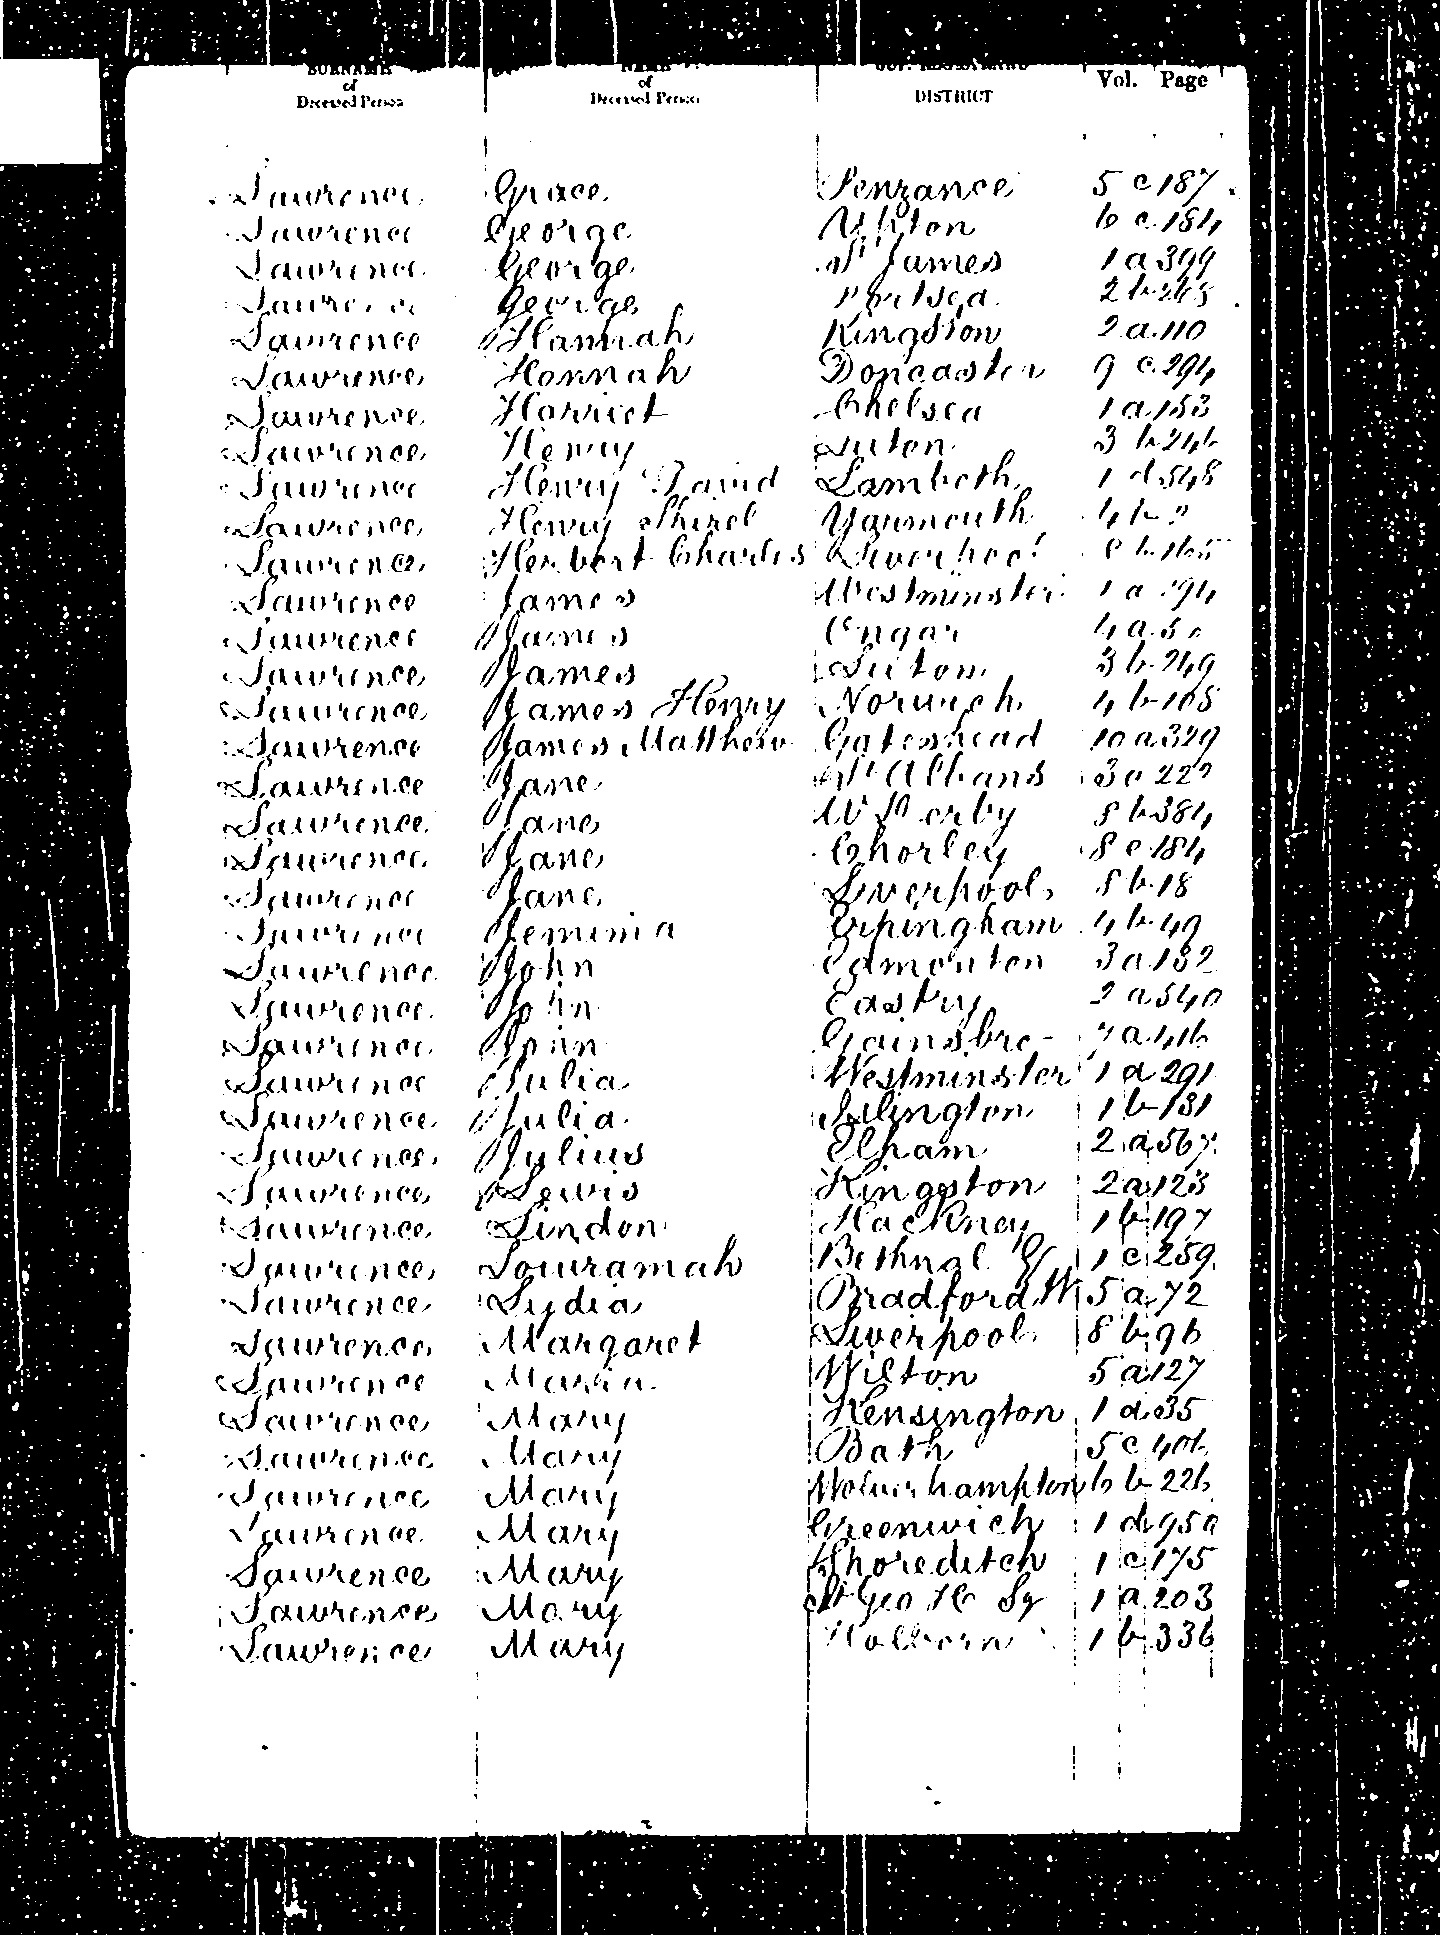 SURNAME of Deceased Person NAME of Deceased Person DISTRICT Vol. Page
Lawrence Grace Penzance 5 c 187
Lawrence George Upton 6 c 184
Lawrence George St James 1 a 399
Lawrence George Portsea 2 b
Lawrence Hannah Kingston 2 a 110
Lawrence Hannah Doncaster 9 c 294
Lawrence Harriet Chelsea 1 a 153
Lawrence Henry Luton 3 b 246
Lawrence Henry David Lambeth 1 d 348
Lawrence Henry Yarmouth 4 b
Lawrence Herbert Charles Liverpool 8 b 165
Lawrence James Westminster 1 a
Lawrence James Ongar 4 a
Lawrence James Luton 3 b 249
Lawrence James Henry Norwich 4 b 105
Lawrence James Matthew Gateshead 10 a 329
Lawrence Jane St Albans 3 a
Lawrence Jane W Derby 8 b 384
Lawrence Jane Chorley 8 e 184
Lawrence Jane Liverpool 8 b 18
Lawrence Jemima Erpingham 4 b 49
Lawrence John Edmonton 3 a 132
Lawrence John Eastry 2 a 540
Lawrence John Gainsbro- 7 a 416
Lawrence Julia Westminster 1 a 291
Lawrence Julia Islington 1 b 131
Lawrence Julius Elham 2 a 567
Lawrence Lewis Kingston 2 a 123
Lawrence Lindon Hackney 1 b 197
Lawrence Lowramah Bethnal G 1 c 259
Lawrence Lydia Bradford W 5 a 72
Lawrence Margaret Liverpool 8 b 96
Lawrence Maria Wilton 5 a 127
Lawrence Mary Kensington 1 a 35
Lawrence Mary Bath 5 c 406
Lawrence Mary Wolverhampton 6 b 226
Lawrence Mary Greenwich 1 d 950
Lawrence Mary Shoreditch 1 c 175
Lawrence Mary St Geo H Sq 1 a 203
Lawrence Mary Holborn 1 b 336